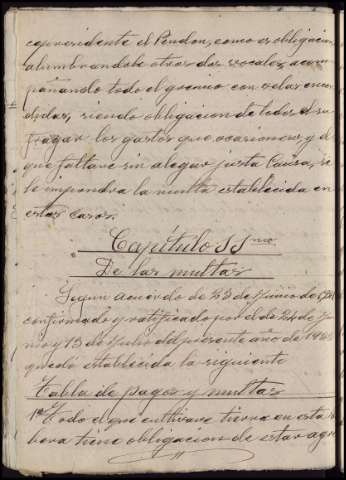 copresidente el Pendon, como es obligacion
alumbrandole otros dos vocales, acom
pañando todo el gremio con velas encen
didas, siendo obligacion de todos el su
fragar los gastos que ocasionen, y el
que faltare sin alegar justa Causa, se
le impondra la multa establecida en
estos casos.
Capítulo 11mo
De las multas
Segun acuerdo de 23 de Junio de
confirmado y ratificado por el de 24 de Ju
nio y 13 de Julio del presente año de
quedó establecida la siguiente
Tabla de pagos y multas
1ª Todo el que cultivare tierra en esta
bera tiene obligacion de estar agre